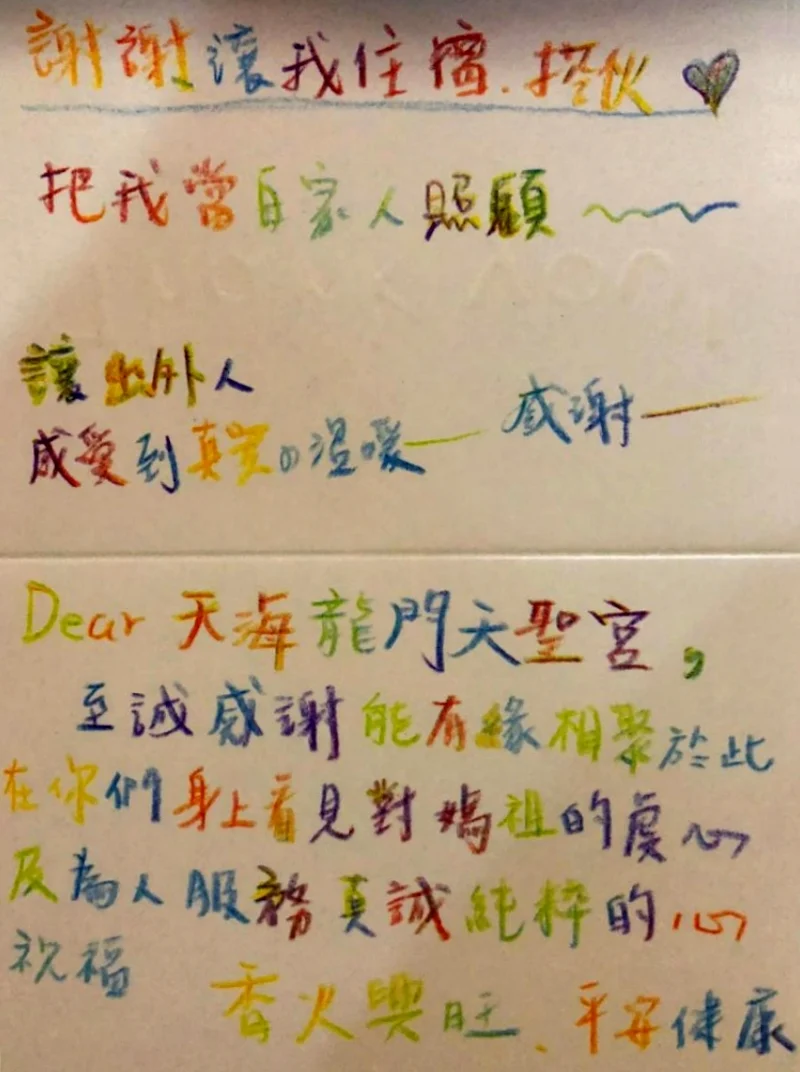 謝謝讓我住宿.搭伙
把我當自家人照顧
讓出外人
感受到真實の溫暖 感謝
Dear 天海龍門天聖宮,
至誠感謝能有緣相聚於此
在你們身上看見對媽祖的虔心
及為人服務真誠純粹的心
祝福
香火興旺、平安健康